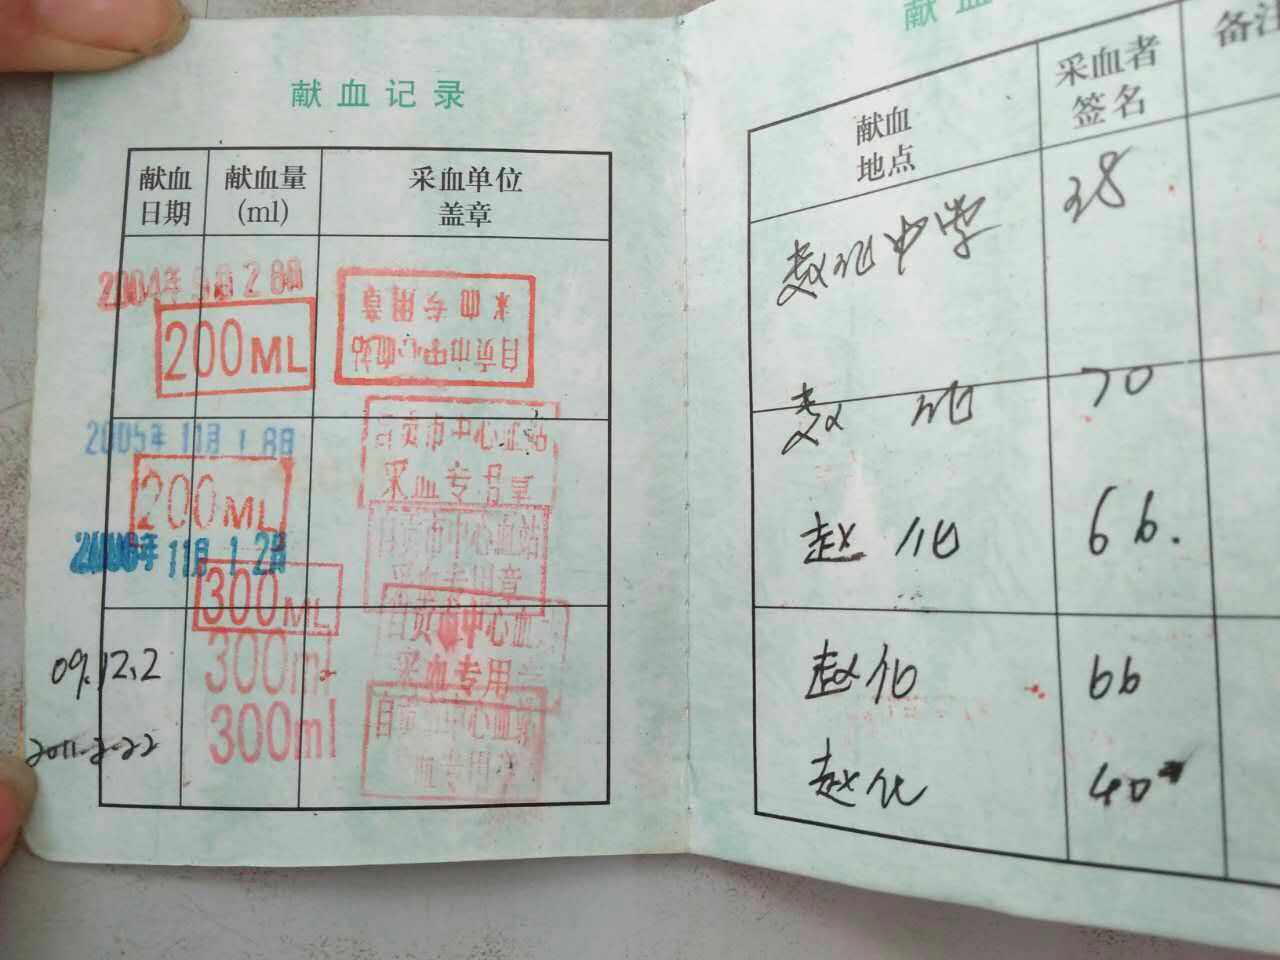 献血记录
献血日期
献血量(ml)
采血单位盖章
200ML
自贡市中心血站
采血专用章
2005年11月18日
200ML
自贡市中心血站
采血专用章
2006年11月12日
300ML
自贡市中心血站
采血专用章
09.12.2
300ml
自贡市中心血
采血专用
2011.2.22
300ml
自贡市中心血站
血专用章
献血
献血地点
采血者签名
备注
赵化中学
38
赵化
70
赵化
66.
赵化
66
赵化
40